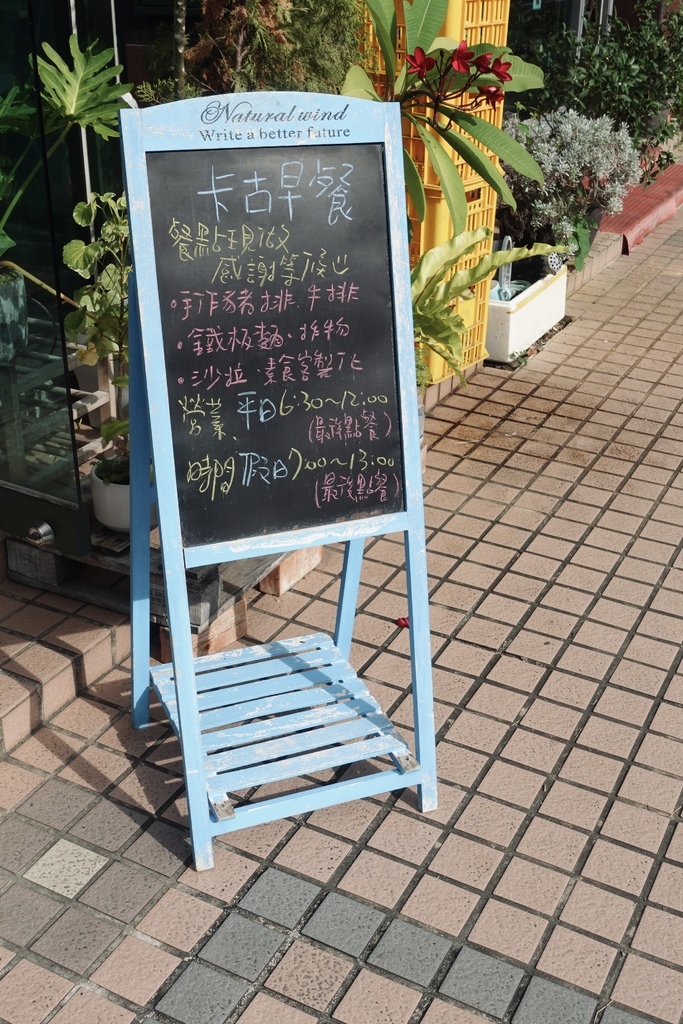 Natural wind
Write a better future
卡古早餐
餐點現做
感謝等候
•手作豬排、牛排
•鐵板麵、炸物
•沙拉、素食客製化
營業 平日6:30～12:00
(最後點餐)
時間 假日7:00～13:00
(最後點餐)